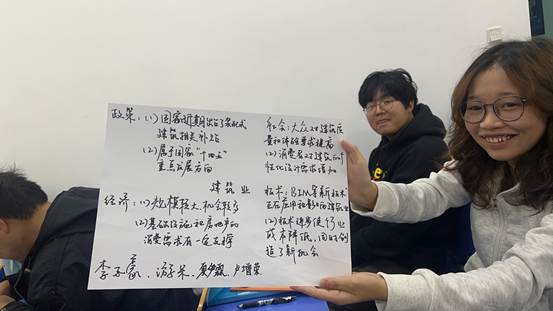 政策：(1)国家近期出台了装配式
建筑相关补贴
(2)属于国家“十四五”
重点发展方向
社会：大众对建筑质
量和体验要求提高
(2)消费者对建筑的个
性化设计需求增加
建筑业
经济：(1)规模较大，机会较多
(2)基础设施和房地产的
消费需求有一定支撑
技术：BIM等新技术
正在应用和影响建筑业
(2)技术进步使行业
成本降低，同时创
造了新机会